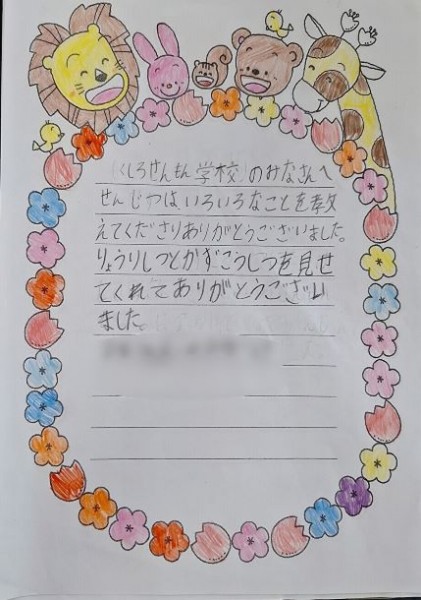 くしろせんもん学校のみなさんへ
せんじつはいろいろなことを教
えてくださりありがとうございました。
りょうりしつとかずこうしつを見せ
てくれてありがとうござい
ました。